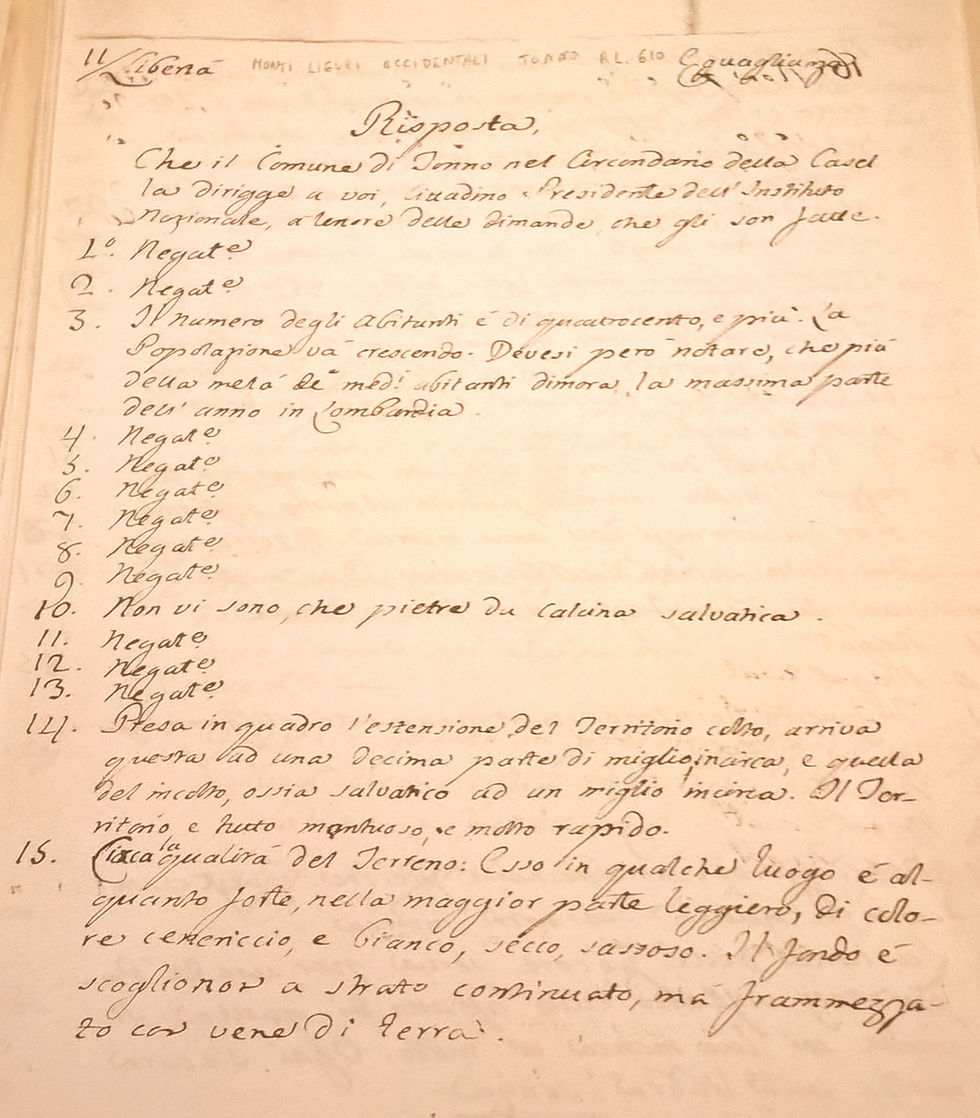 11/ Libertà MONTI LIGURI OCCIDENTALI TONNO R L. 610 Eguaglianza
Risposta,
Che il Comune di Tonno nel Circondario della Casel
la dirigge a voi, Cittadino Presidente dell'Instituto
Nazionale, a tenore delle dimande, che gli son fatte.
1º. Negatᵉ
2. Negatᵉ
3. Il numero degli Abitanti é di quatrocento, e più. La
Popolazione vá crescendo. Devesi però notare, che più
della metá de' medⁱ abitanti dimora la massima parte
dell' anno in Lombardia.
4. Negatᵉ
5. Negatᵉ
6. Negatᵉ
7. Negatᵉ
8. Negatᵉ
9. Negatᵉ
10. Non vi sono, che pietre da calcina salvatica.
11. Negatᵉ
12. Negatᵉ
13. Negatᵉ
14. Presa in quadro l'estensione del Territorio colto, arriva
questa ad una decima parte di miglio incirca, e quella
del incolto, ossia salvatico ad un miglio incirca. Il Ter-
ritorio, e tutto montuoso, e molto rapido.
15. Circa la qualità del Terreno: Esso in qualche luogo é al-
quanto forte, nella maggior parte leggiero, di colo-
re cenericcio, e bianco, secco, sassoso. Il fondo é
a strato continuato, má frammezza-
to con vene di terra.